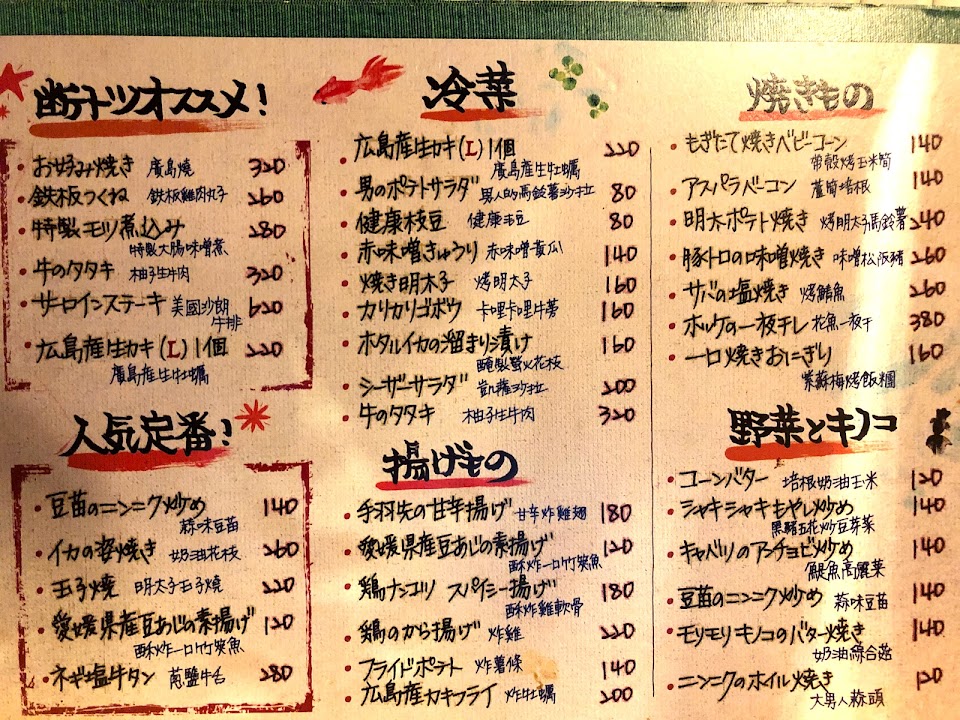 断トツオススメ!
お好み焼き 廣島燒 320
鉄板つくね 鉄板雞肉丸子 260
特製モツ煮込み 280
特製大腸味噌煮
牛のタタキ 柚子生牛肉 320
サーロインステーキ 美國沙朗牛排 620
広島産生カキ(L)1個 220
廣島産生牡蠣
人気定番!
豆苗のニンニク炒め 140
蒜味豆苗
イカの姿焼き 奶油花枝 260
玉子焼 明太子玉子燒 220
愛媛県産豆あじの素揚げ 120
酥炸一口竹筴魚
ネギ塩牛タン 蔥鹽牛舌 280
冷菜
広島産生カキ(L)1個 220
廣島産生牡蠣
男のポテトサラダ 男人的馬鈴薯沙拉 80
健康枝豆 健康毛豆 80
赤味噌きゅうり 赤味噌黃瓜 140
焼き明太子 烤明太子 160
カリカリゴボウ 卡哩卡哩牛蒡 160
ホタルイカの溜まり漬け 160
醃製螢火花枝
シーザーサラダ 凱薩沙拉 200
牛のタタキ 柚子生牛肉 320
揚げもの
手羽先の甘辛揚げ 甘辛炸雞翅 180
愛媛県産豆あじの素揚げ 120
酥炸一口竹筴魚
鶏ナンコツ スパイシー揚げ 180
酥炸雞軟骨
鶏のから揚げ 炸雞 220
フライドポテト 炸薯條 140
広島産カキフライ 炸牡蠣 200
焼きもの
もぎたて焼きベビーコーン 140
帶殼烤玉米筍
アスパラベーコン 蘆筍培根 140
明太ポテト焼き 烤明太子馬鈴薯 240
豚トロの味噌焼き 味噌松阪豬 260
サバの塩焼き 烤鯖魚 260
ホッケの一夜干し 花魚一夜干 380
一口焼きおにぎり 160
紫蘇梅烤飯糰
野菜とキノコ
コーンバター 培根奶油玉米 120
シャキシャキもやし炒め 140
黑豬五花炒豆芽菜
キャベツのアンチョビ炒め 140
鯷魚高麗菜
豆苗のニンニク炒め 蒜味豆苗 140
モリモリキノコのバター焼き 140
奶油綜合菇
ニンニクのホイル焼き 120
大男人蒜頭